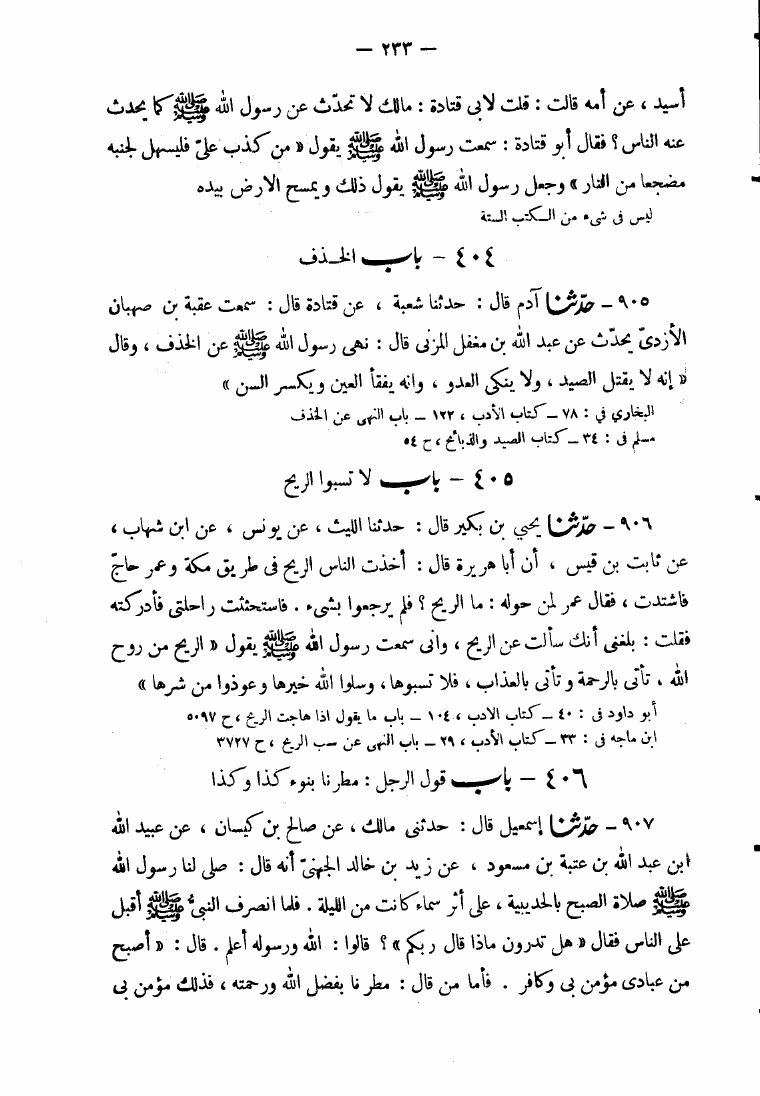 — ٢٣٣ —
أسيد ، عن أمه قالت : قلت لابى قتادة : مالك لا تحدّث عن رسول الله ﷺ كما يحدث
عنه الناس ؟ فقال أبو قتادة : سمعت رسول الله ﷺ يقول « من كذب علىّ فليسهل لجنبه
مضجعا من النار » وجعل رسول الله ﷺ يقول ذلك ويمسح الارض بيده
ليس فى شىء من الكتب الستة
٤٠٤ – باب الخذف
٩٠٥ – حدّثنا آدم قال : حدثنا شعبة ، عن قتادة قال : سمعت عقبة بن صهبان
الأزدىّ يحدّث عن عبد الله بن مغفل المزنى قال : نهى رسول الله ﷺ عن الخذف ، وقال
« إنه لا يقتل الصيد ، ولا ينكى العدو ، وانه يفقأ العين ويكسر السن »
البخاري في : ٧٨ – كتاب الأدب ، ١٢٢ – باب النهى عن الخذف
مسلم فى : ٣٤ – كتاب الصيد والذبائح ، ح ٥٤
٤٠٥ – باب لا تسبوا الريح
٩٠٦ – حدّثنا يحيي بن بكير قال : حدثنا الليث ، عن يونس ، عن ابن شهاب ،
عن ثابت بن قيس ، أن أبا هريرة قال : أخذت الناس الريح فى طريق مكة وعمر حاجّ
فاشتدت ، فقال عمر لمن حوله : ما الريح ؟ فلم يرجعوا بشىء . فاستحثثت راحلتى فأدركته
فقلت : بلغنى أنك سألت عن الريح ، وانى سمعت رسول الله ﷺ يقول « الريح من روح
الله ، تأتى بالرحمة وتأتى بالعذاب ، فلا تسبوها ، وسلوا الله خيرها وعوذوا من شرها »
أبو داود فى : ٤٠ – كتاب الادب ، ١٠٤ – باب ما يقول اذا هاجت الريح ، ح ٥٠٩٧
ابن ماجه فى : ٣٣ – كتاب الأدب ، ٢٩ – باب النهى عن سب الريح ، ح ٣٧٢٧
٤٠٦ – باب قول الرجل : مطرنا بنوء كذا وكذا
٩٠٧ – حدّثنا إسمعيل قال : حدثنى مالك ، عن صالح بن كيسان ، عن عبيد الله
ابن عبد الله بن عتبة بن مسعود ، عن زيد بن خالد الجهنىّ أنه قال : صلى لنا رسول الله
ﷺ صلاة الصبح بالحديبية ، على أثر سماء كانت من الليلة . فلما انصرف النبىُّ ﷺ أقبل
على الناس فقال « هل تدرون ماذا قال ربكم » ؟ قالوا : الله ورسوله أعلم . قال : « أصبح
من عبادى مؤمن بى وكافر . فأما من قال : مطرنا بفضل الله ورحمته ، فذلك مؤمن بى